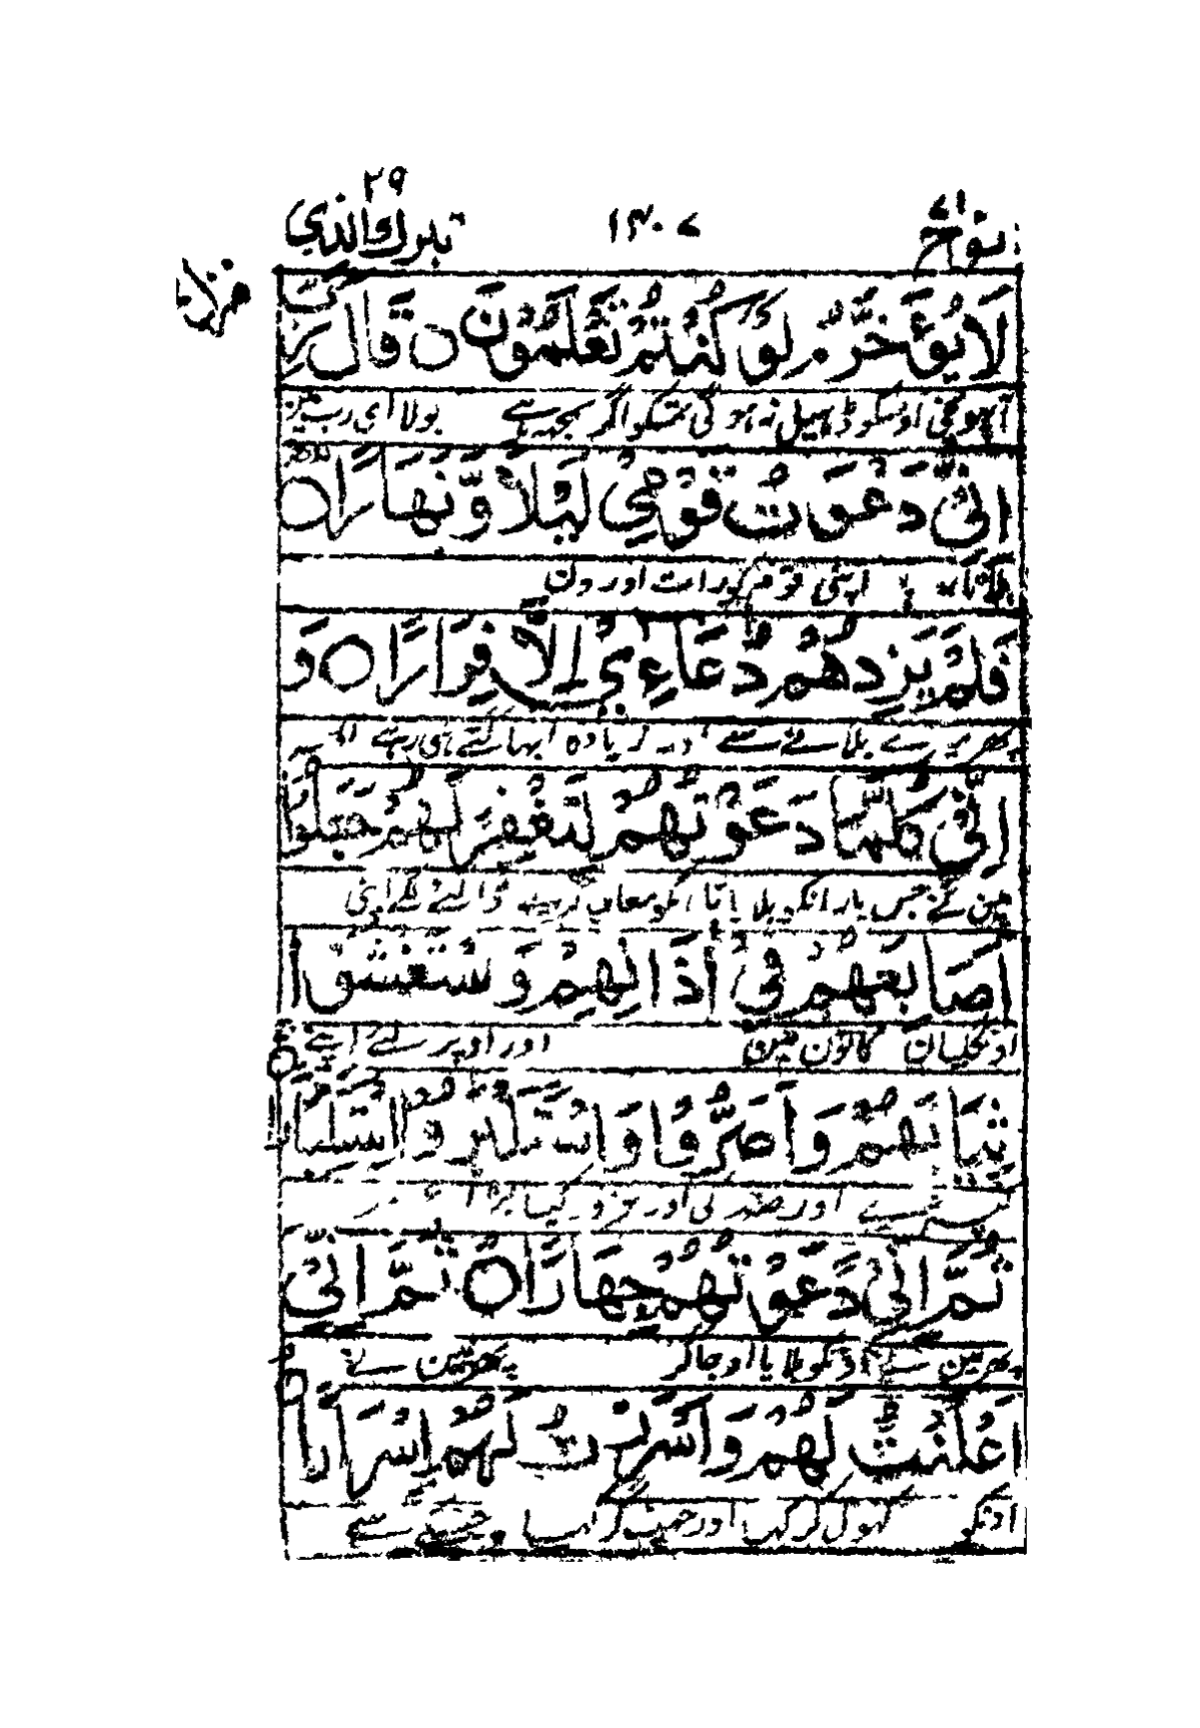 نوح ٧١
١٣٠٧
تبرك الذي ٢٩
لَا يُؤَخَّرُ لَوْ كُنْتُمْ تَعْلَمُوْنَ ○ قَالَ رَبِّ
نہ ہو گی تمکو اگر سمجھ ہے بولا ای رب مین
اِنِّیْ دَعَوْتُ قَوْمِیْ لَیْلًا وَّنَهَارًا ○
اپنی قوم کو رات اور دن
فَلَمْ یَزِدْهُمْ دُعَاءِیْ اِلَّا فِرَارًا ○ وَ
پھر میرے بلانے سے زیادہ بھاگتے ہی رہے اور
اِنِّیْ كُلَّمَا دَعَوْتُهُمْ لِتَغْفِرَ لَهُمْ جَعَلُوْا
مین نے جس بار انکو بلایا تا انکو معاف کرے ڈالنے لگے اپنی
اَصَابِعَهُمْ فِیْ اٰذَانِهِمْ وَاسْتَغْشَوْا
اونگلیان کانون مین اور اوپر لئے اپنے
ثِیَابَهُمْ وَاَصَرُّوْا وَاسْتَكْبَرُوا اسْتِكْبَارًا ○
کپڑے اور ضد کی اور غرور کیا بڑا
ثُمَّ اِنِّیْ دَعَوْتُهُمْ جِهَارًا ○ ثُمَّ اِنِّیْ
پھر مین نے اونکو بلایا اوجاگر پھر مین نے
اَعْلَنْتُ لَهُمْ وَاَسْرَرْتُ لَهُمْ اِسْرَارًا ○
اونکو کھول کر کہا اور چھپ کر کہا چپکے سے